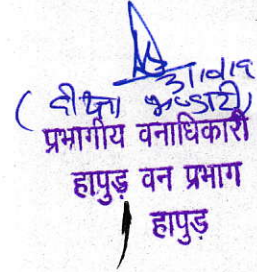 31/10/19
(दीक्षा भण्डारी)
प्रभागीय वनाधिकारी
हापुड़ वन प्रभाग
हापुड़